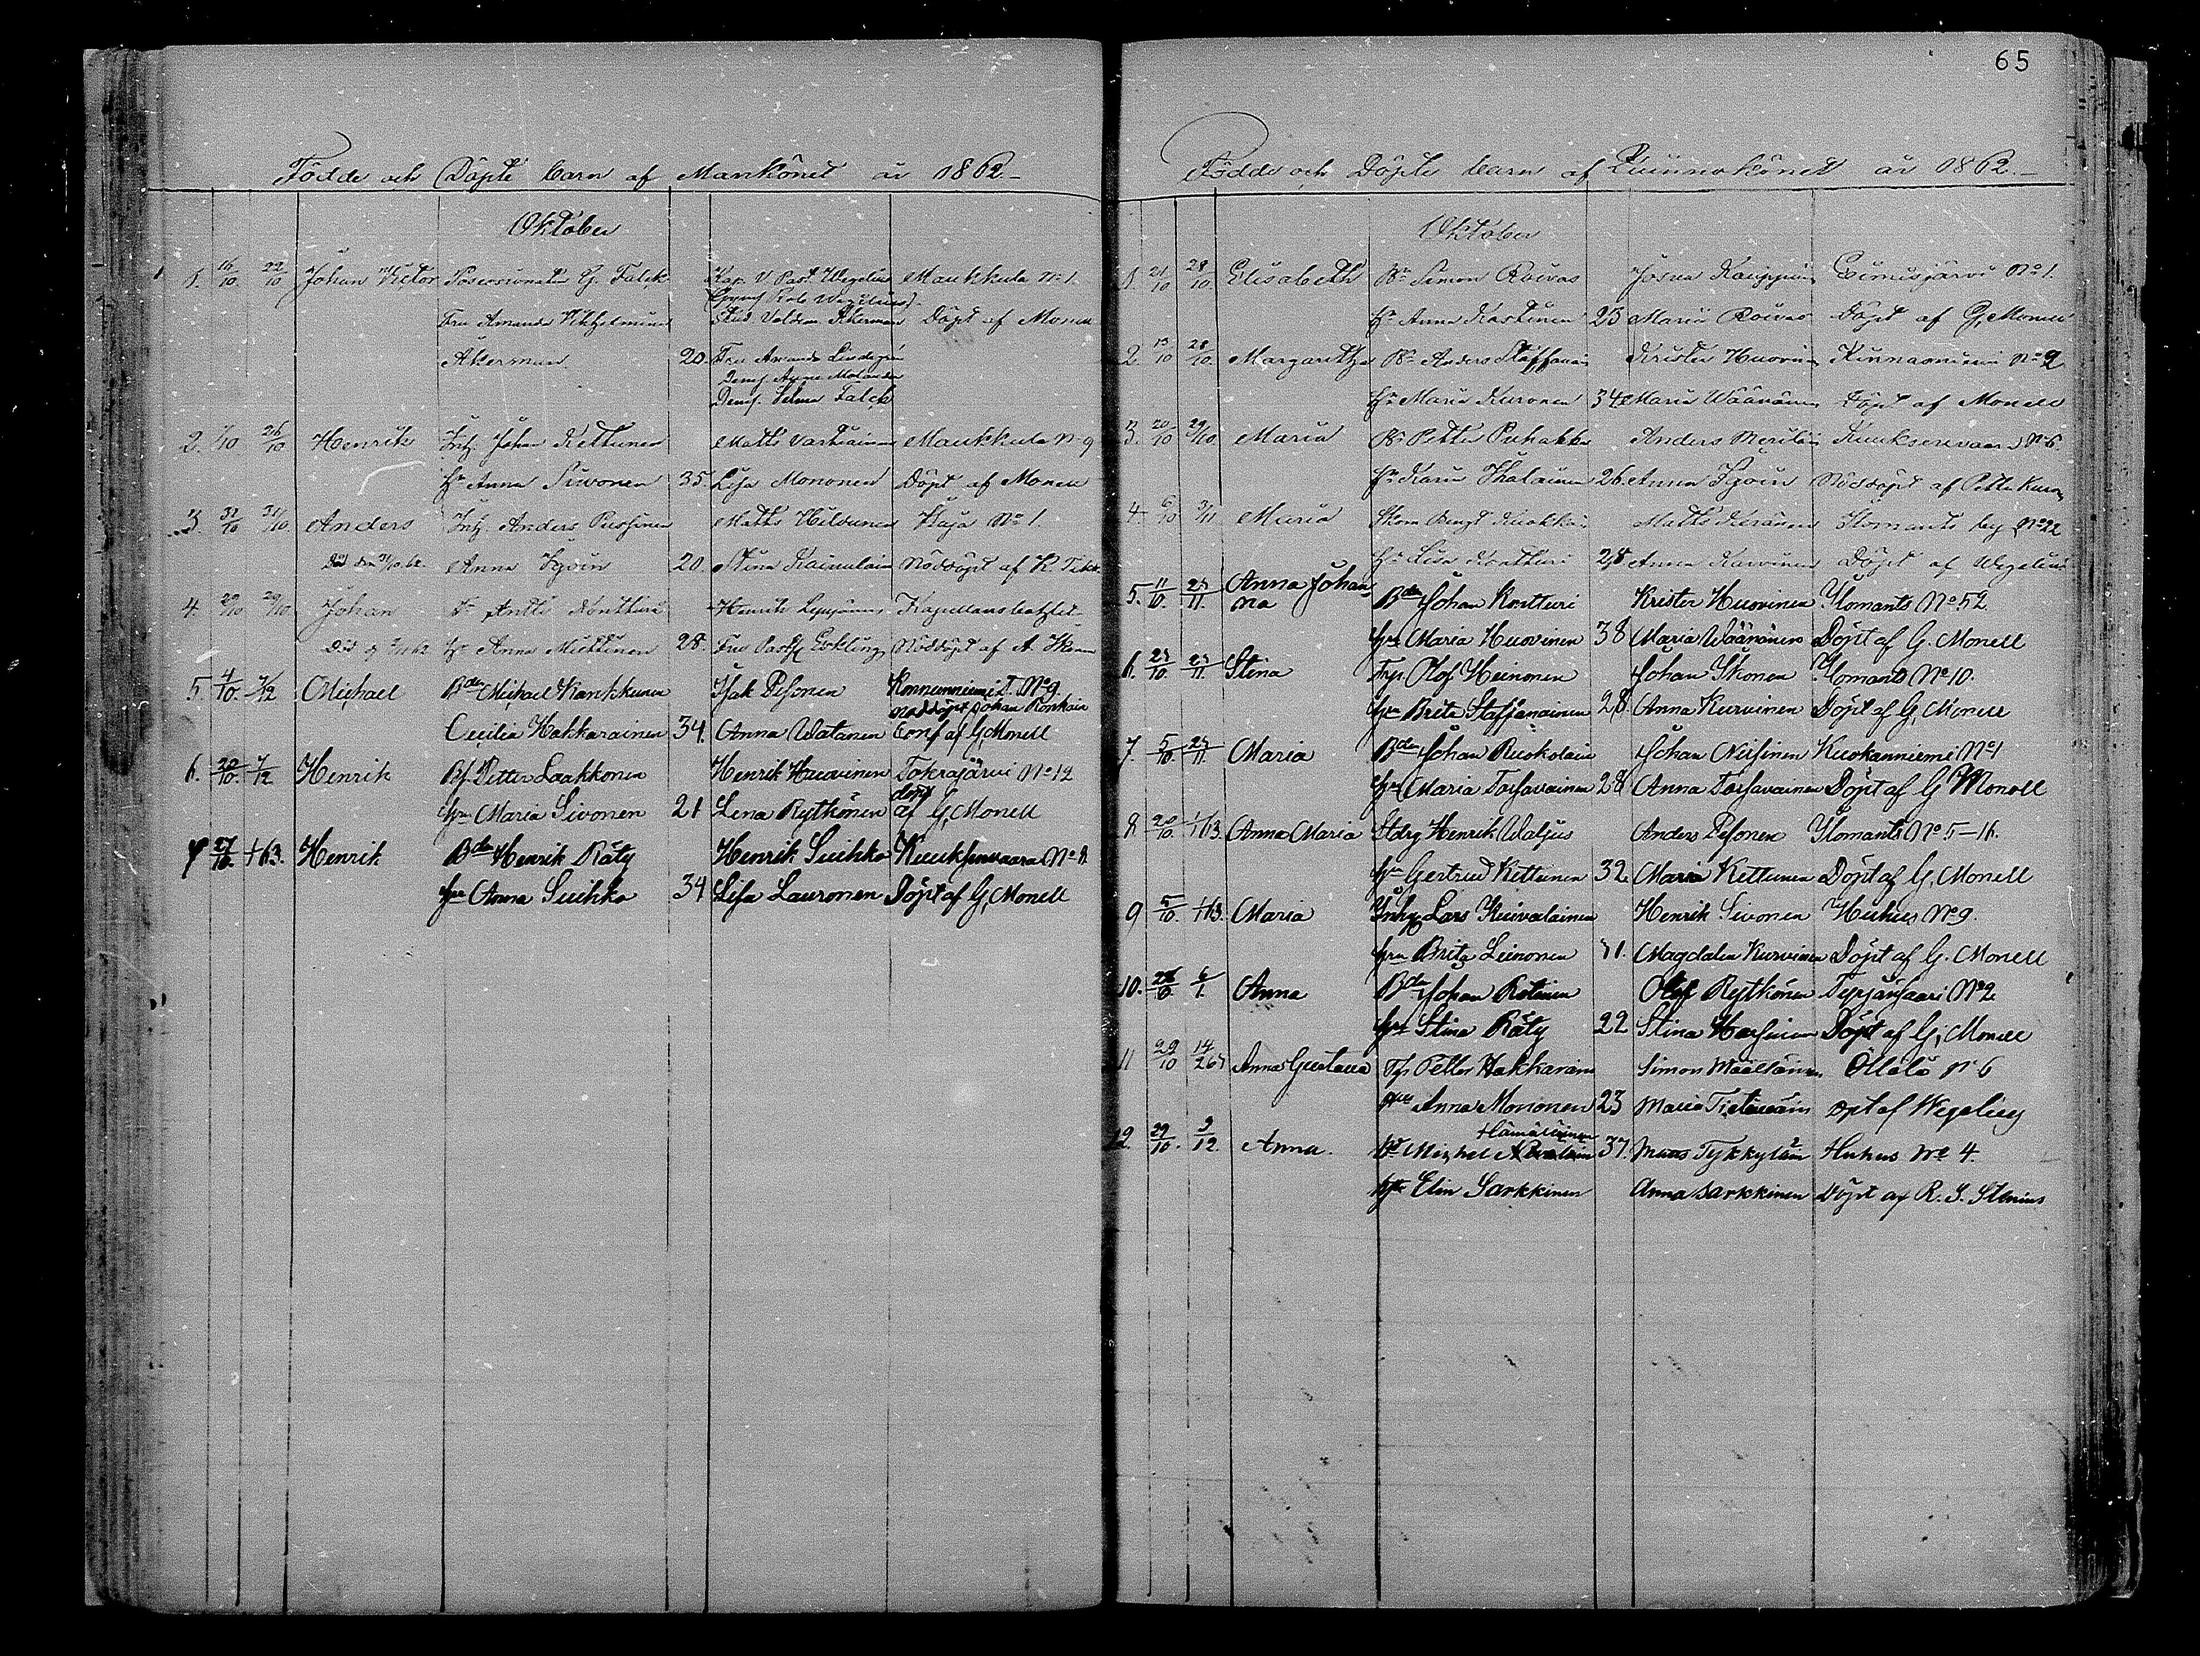 65
Födde och Döpte barn af Mankönet år 1862.
Oktober
1. 16/10 22/10 Johan Victor Possessionaten G. Falck Kap. V. Past. Wegelius Maukkula No 1.
Fru Amanda Vilhelmina Stud Valdem Åkerman Döpt af Monell
Åkerman 20. Fru Amanda Lindegren
Demf. Anna Molander
Demf. Selma Falck
2. 7/10 26/10 Henrik Inh. Johan Kettunen Matts Vartiainen Maukkula No 9
Hu Anna Siivonen 35. Lisa Mononen Döpt af Monell
3 31/10 31/10. Anders Inh. Anders Pussinen Matts Hildunen Haja No 1.
Död den 31/10 62. Anna Igoin 20. Stina Kainulain Nöddöpt af K. Tikk
4 29/10 29/10 Johan Antti Kontturi Henrik Kapellansbohlet
Död 62 Hu Anna Miettinen 28. Fru Past Eskling Nöddöpt af A. Ikonen
5 4/10. 7/12 Michael Bdn Michael Karhkunen Isak Pesonen Konnunniemi No 9.
Nöddöpt Johan Ronkain
Cecilia Hakkarainen 34. Anna Watanen Conf af G. Monell
6. 20/10. 7/12 Henrik Bf. Petter Laakkonen Henrik Huovinen Tokrajärvi No 12
Hru Maria Sivonen 21 Lena Rytkönen döpt af G. Monell
7 27/10. 1/1 63. Henrik Bdn Henrik Räty Henrik Suihko Kuuksenvaara No 8.
Hru Anna Suihko 34 Lisa Lauronen Döpt af G. Monell
Födde och Döpte barn af Quinnokönet år 1862.
Oktober
1. 21/10 28/10. Elisabeth Bn Simon Roivas Josua Kauppinen No 1.
Hu Anna Kostunen 23 Maria Roivas Döpt af G. Monell
2. 13/10 28/10. Margaretha Bn Anders Staffanain Krister Huovinen Kinnasniemi No 9
Hu Maria Kuronen 34 Maria Wäänänen Döpt af Monell
3. 20/10 29/10. Maria Bn Petter Puhakka Anders Meriläin Kuuksenvaara No 6.
Hu Karin Ihalainen 26. Anna Igoin Nöddöpt af Petter Kuron
4. 6/10 3/11 Maria Skom Bengt Kuokka Matts Keränen Ilomants by No 22
Hu Lisa Kontturi 28 Anna Karvinen Döpt af Wegelius
5. 11/10. 23/11. Anna Johanna Bdn Johan Kontturi Krister Huovinen Ilomants No 52
Hru Maria Huovinen 38 Maria Wäänänen Döpt af G. Monell
6. 23/10. 23/11. Stina Trp. Olof Heinonen Johan Ikonen Ilomants No 10.
Hru Brita Staffanainen 28 Anna Kurvinen Döpt af G. Monell
7. 5/10. 23/11. Maria Bdn Johan Ruokolain Johan Nissinen Kuokanniemi No 1
Hru Maria Torsavainen 28 Anna Torsavainen Döpt af G Monell
8. 20/10. 1/1 63. Anna Maria Stdrg Henrik Waljus Anders Pesonen Ilomants No 5-16.
Hru Gertrud Kettunen 32 Maria Kettunen Döpt af G. Monell
9 5/10. 1/1 63. Maria Inhy Lars Kuivalainen Henrik Sivonen Huhus No 9.
Hru Brita Leinonen 41. Magdalen Kurvinen Döpt af G. Monell
10. 28/10. 6/1. Anna Bdn Johan Rotinen Olof Rytkönen Tyrjänsaari No 2
Hru Stina Räty 22 Stina Harsuinen Döpt af G. Monell
11 29/10 14/2 67 Anna Gustava Trp Petter Hakkarain Simon Määttänen Öllölä No 6
Hru Anna Mononen 23 Maria Tietäväin Dpt af Wegelius
12. 29/10. 9/12. Anna. Michel Hämäläinen 37. Tykkyläin Huhus No 4.
Hu Elin Sarkkinen Anna Sarkkinen Döpt af R. J. Stenius